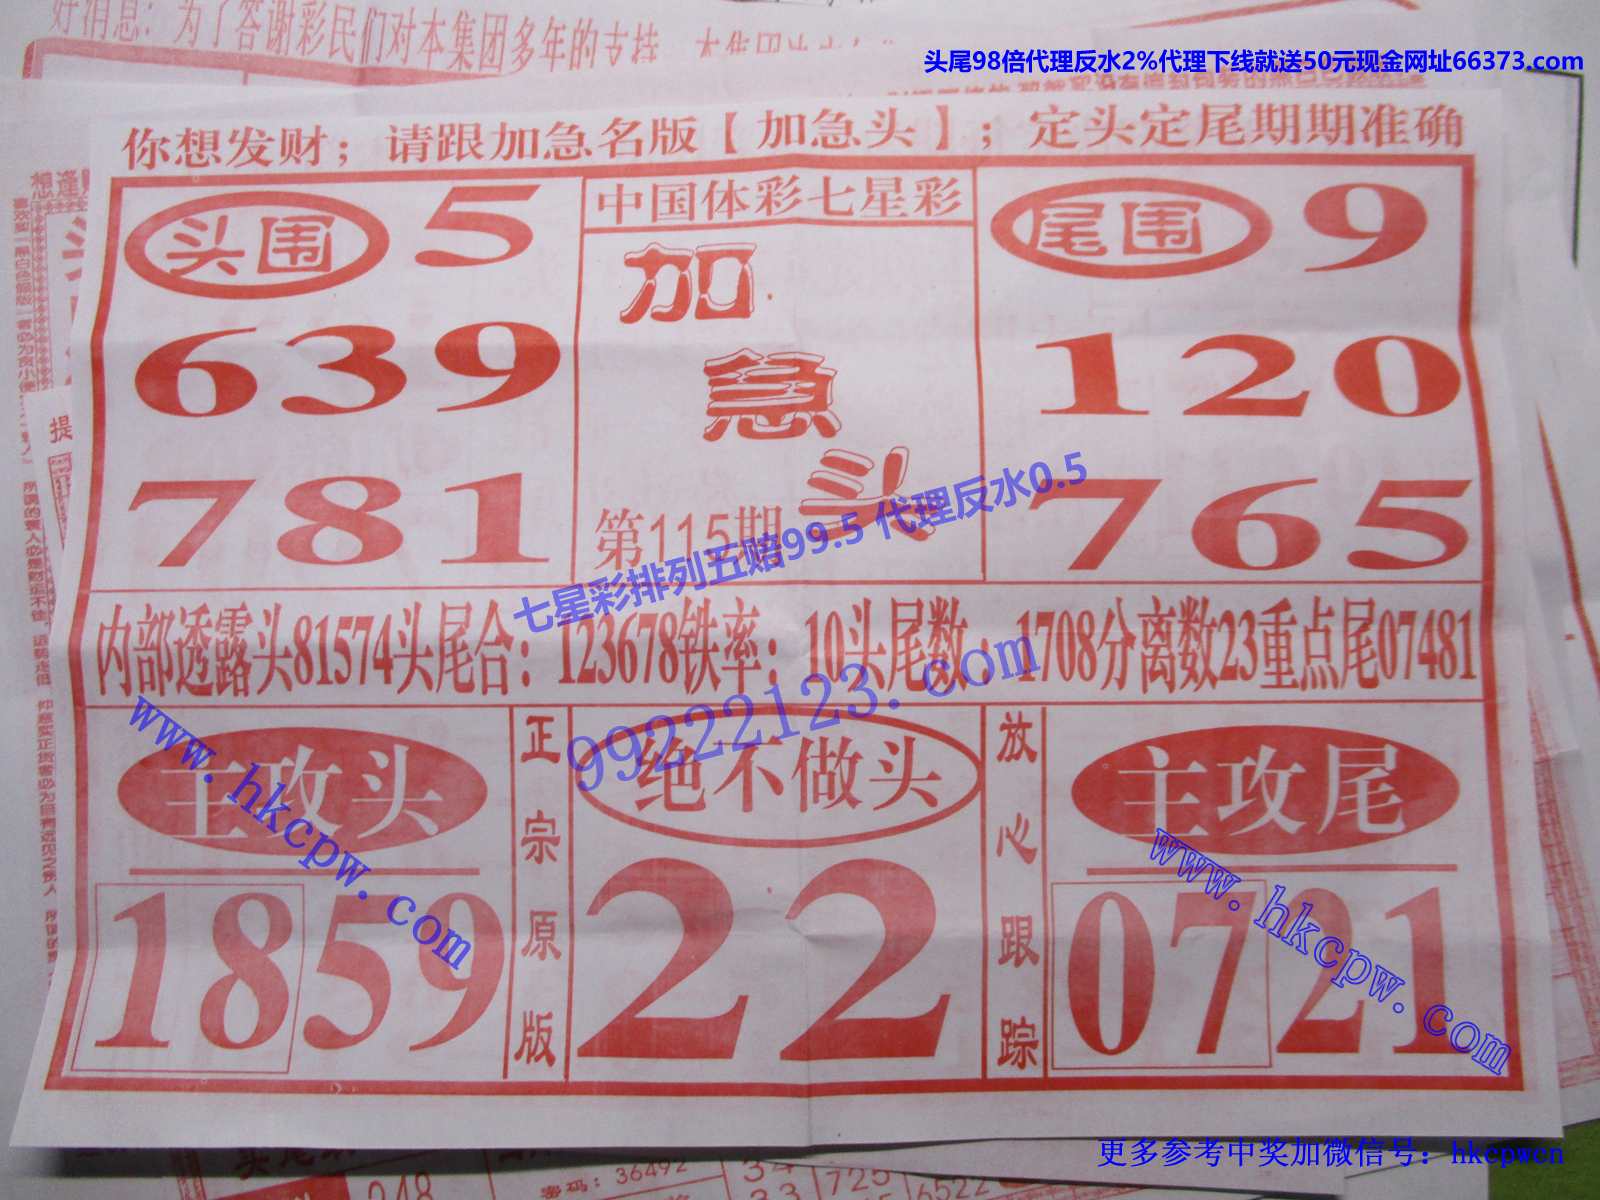 好消息：为了答谢彩民们对本集团多年的支持
头尾98倍代理反水2%代理下线就送50元现金网址66373.com
你想发财；请跟加急名版【加急头】；定头定尾期期准确
头围 5
639
781
中国体彩七星彩
加
急
头
第115期
尾围 9
120
765
七星彩排列五赔99.5 代理反水0.5
内部透露头81574头尾合：123678铁率：10头尾数：1708分离数23重点尾07481
99222123.com
主攻头
1859
www.hkcpw.com
正宗原版
绝不做头
22
放心跟踪
主攻尾
0721
www.hkcpw.com
更多参考中奖加微信号：hkcpwcn
密码：36492
248
725
6522